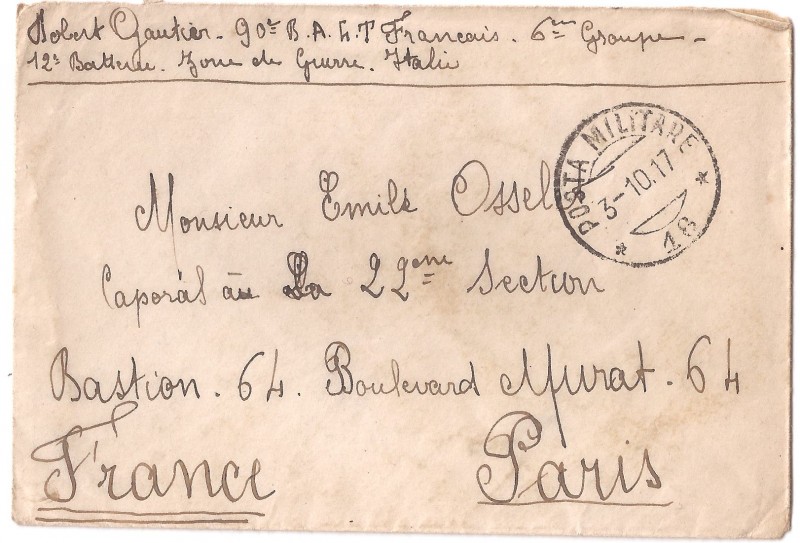 Robert Gautier. 90e B.A.L.T Francais. 6eme Groupe -
12e Batterie. Zone de Guerre. Italie
POSTA MILITARE
3-10.17
* 18 *
Monsieur Emile Ossel
Caporal au La 22eme Section
Bastion. 64. Boulevard Murat. 64
France Paris